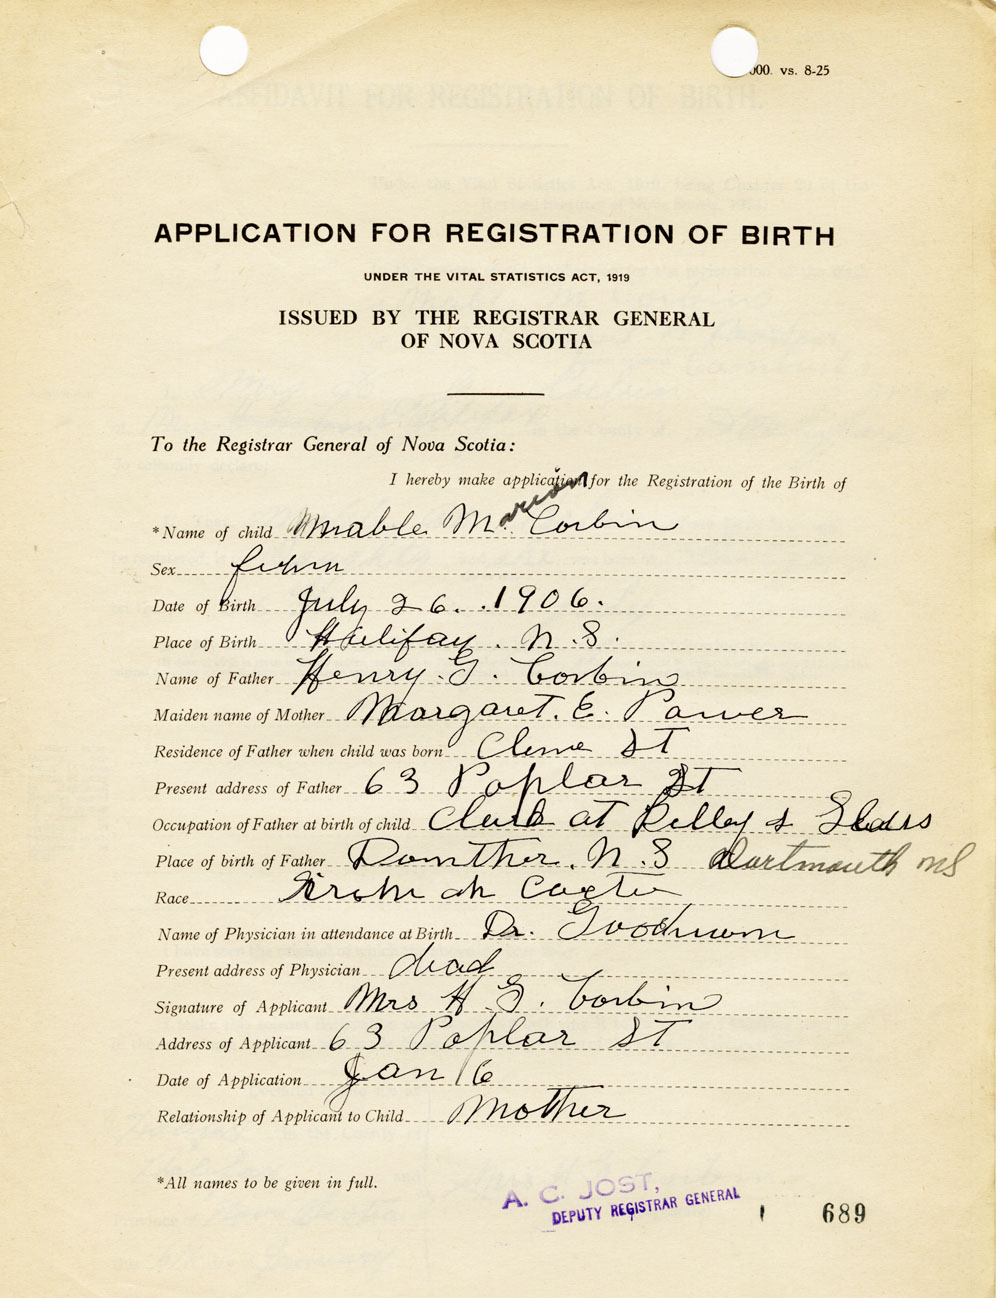 000. vs. 8-25
APPLICATION FOR REGISTRATION OF BIRTH
UNDER THE VITAL STATISTICS ACT, 1919
ISSUED BY THE REGISTRAR GENERAL
OF NOVA SCOTIA
To the Registrar General of Nova Scotia:
I hereby make application for the Registration of the Birth of
*Name of child Mable M. arion Corbin
Sex
Date of Birth July 26. 1906.
Place of Birth Halifax. N.S.
Name of Father Henry. G. Corbin
Maiden name of Mother Margaret. E. Power
Residence of Father when child was born St
Present address of Father 63 Poplar St
Occupation of Father at birth of child Clerk at Kelley & Glass
Place of birth of Father N.S Dartmouth NS
Race
Name of Physician in attendance at Birth Dr.
Present address of Physician dead
Signature of Applicant Mrs H. G. Corbin
Address of Applicant 63 Poplar St
Date of Application Jan 16
Relationship of Applicant to Child Mother
*All names to be given in full.
A. C. JOST,
DEPUTY REGISTRAR GENERAL
689